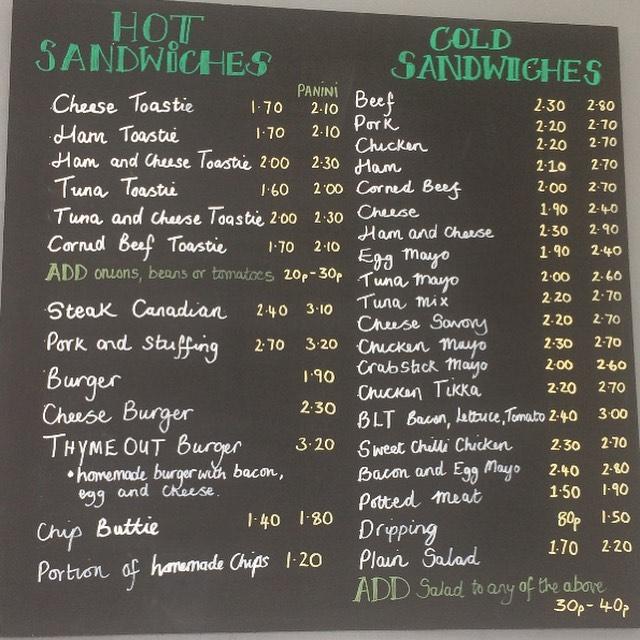 HOT
SANDWICHES
PANINI
Cheese Toastie 1.70 2.10
Ham Toastie 1.70 2.10
Ham and Cheese Toastie 2.00 2.30
Tuna Toastie 1.60 2.00
Tuna and Cheese Toastie 2.00 2.30
Corned Beef Toastie 1.70 2.10
ADD onions, beans or tomatoes 20p-30p
Steak Canadian 2.40 3.10
Pork and Stuffing 2.70 3.20
Burger 1.90
Cheese Burger 2.30
THYME OUT Burger 3.20
• homemade burger with bacon,
egg and cheese.
Chip Buttie 1.40 1.80
Portion of homemade Chips 1.20
COLD
SANDWICHES
Beef 2.30 2.80
Pork 2.20 2.70
Chicken 2.20 2.70
Ham 2.10 2.70
Corned Beef 2.00 2.70
Cheese 1.90 2.40
Ham and Cheese 2.30 2.90
Egg Mayo 1.90 2.40
Tuna Mayo 2.00 2.60
Tuna Mix 2.20 2.70
Cheese Savory 2.20 2.70
Chicken Mayo 2.30 2.70
Crabstick Mayo 2.00 2.60
Chicken Tikka 2.20 2.70
BLT Bacon, Lettuce, Tomato 2.40 3.00
Sweet Chilli Chicken 2.30 2.70
Bacon and Egg Mayo 2.40 2.80
Potted Meat 1.50 1.90
Dripping 80p 1.50
Plain Salad 1.70 2.20
ADD Salad to any of the above
30p-40p